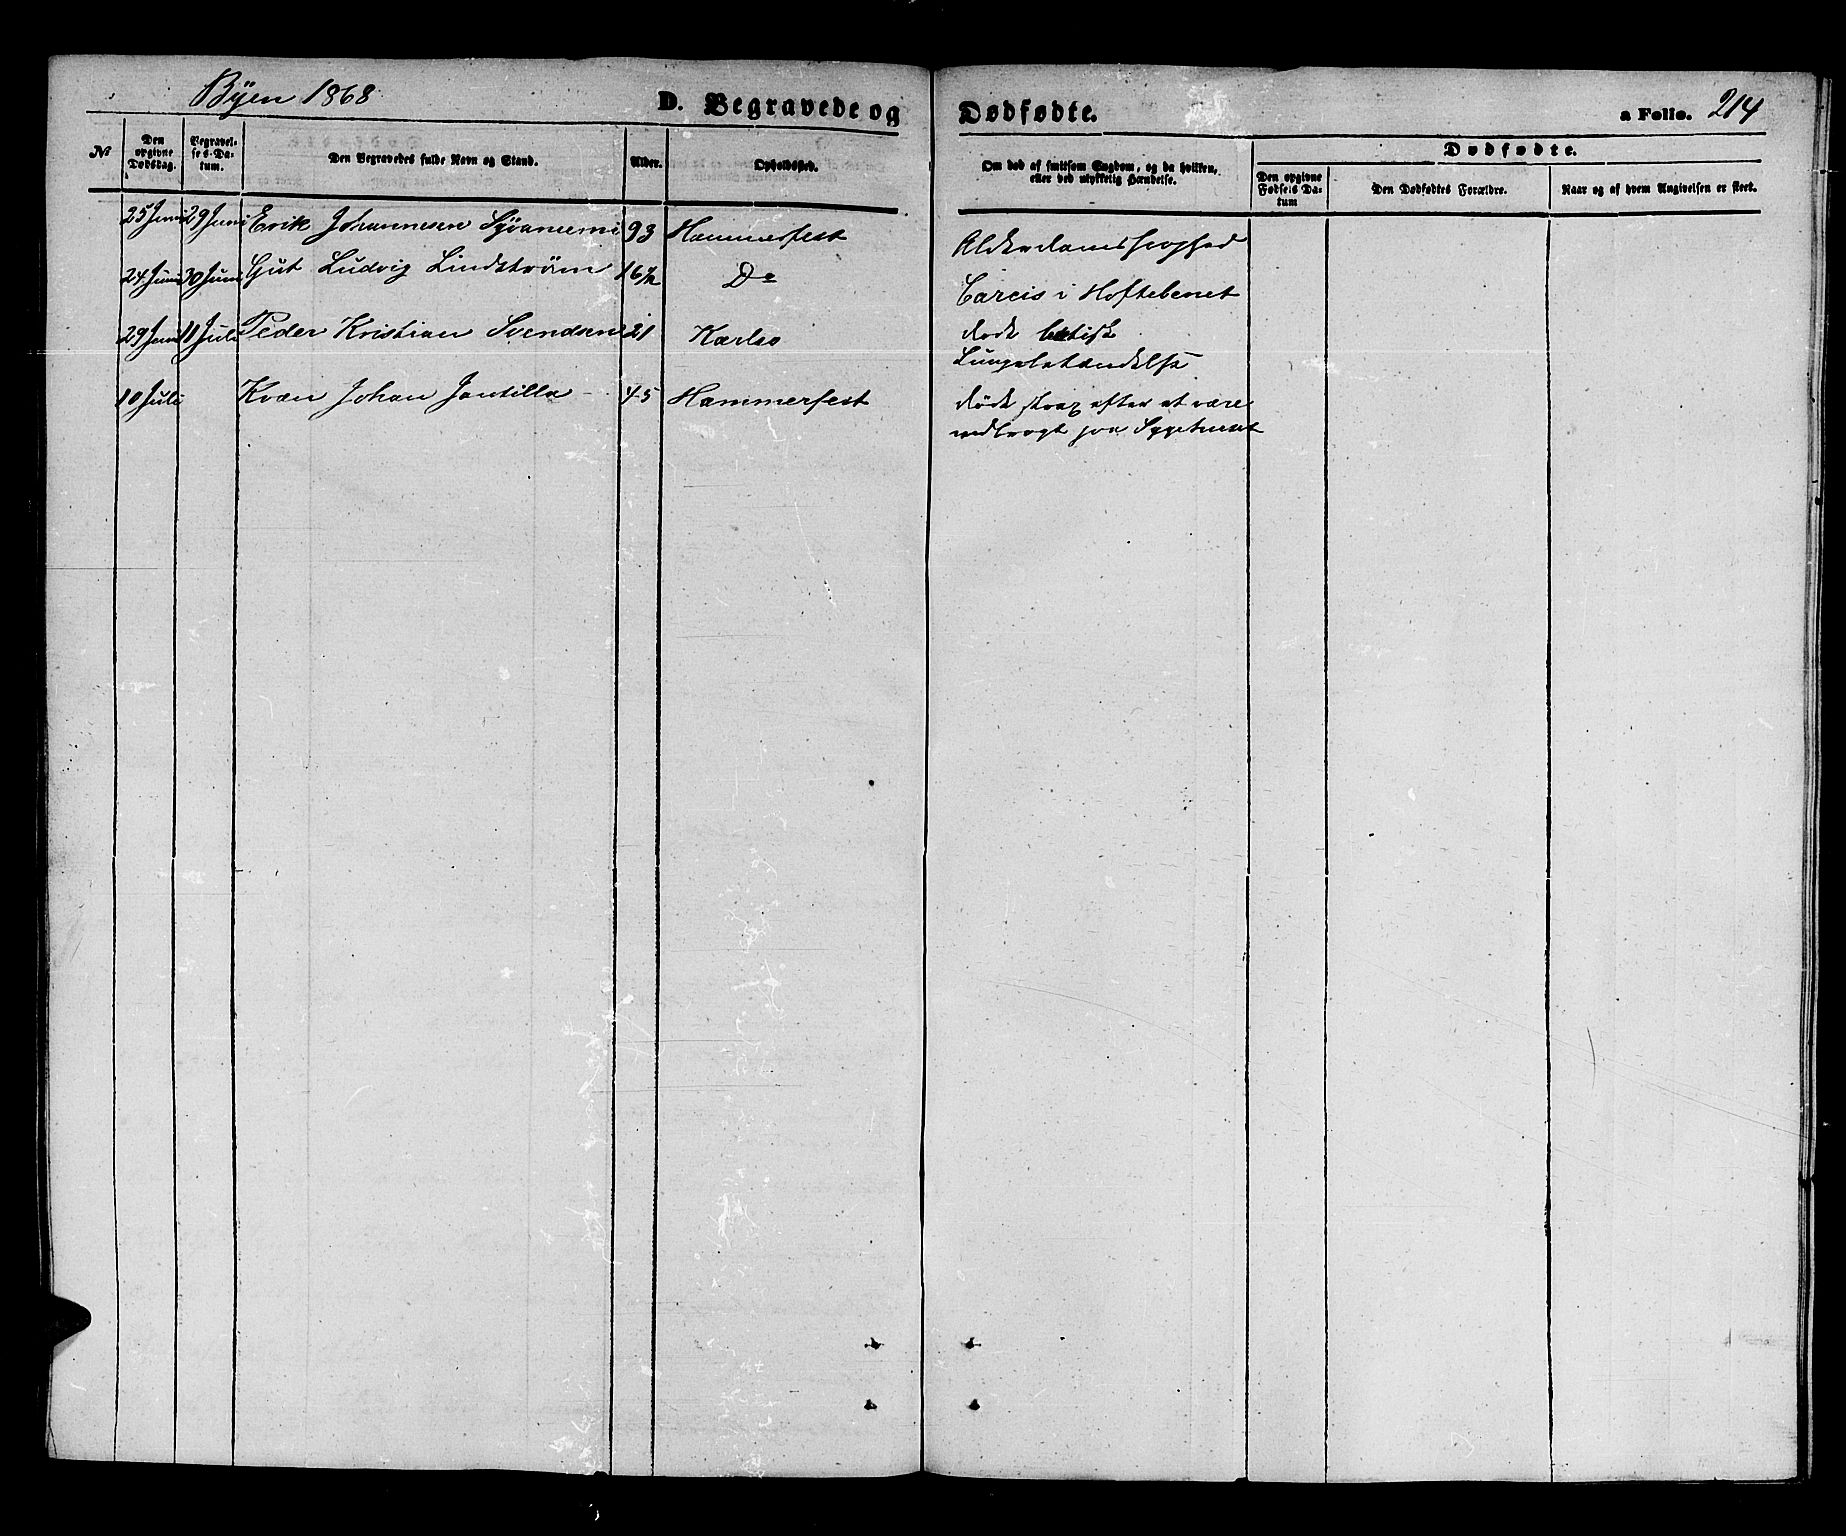 Byen 1868
D. Begravede og Dødfødte.
a Folio. 214
№
Den opgivne Dødsdag.
Begravelses-Datum.
Den Begravedes fulde Navn og Stand.
Alder.
Opholdssted.
Om død af smitsom Sygdom, og da hvilken, eller ved ulykkelig Hændelse.
Dødfødte.
Den opgivne Fødsels Datum
Den Dødfødtes Forældre.
Naar og af hvem Angivelsen er skeet.
25 Juni 29 Juni Erik Johannesen 93 Hammerfest Alderdomssvaghed
24 Juni 30 Juni Gut Ludvig Lindstrøm 16 1/2 Do Caries i Hoftebenet
29 Juni 11 Juli Peder Kristian Svendsen 21 Karlsø død
Lungebetændelse
10 Juli Kvæn Johan Jantilla 45 Hammerfest død strax efter at være
indbragt paa Sygehuset